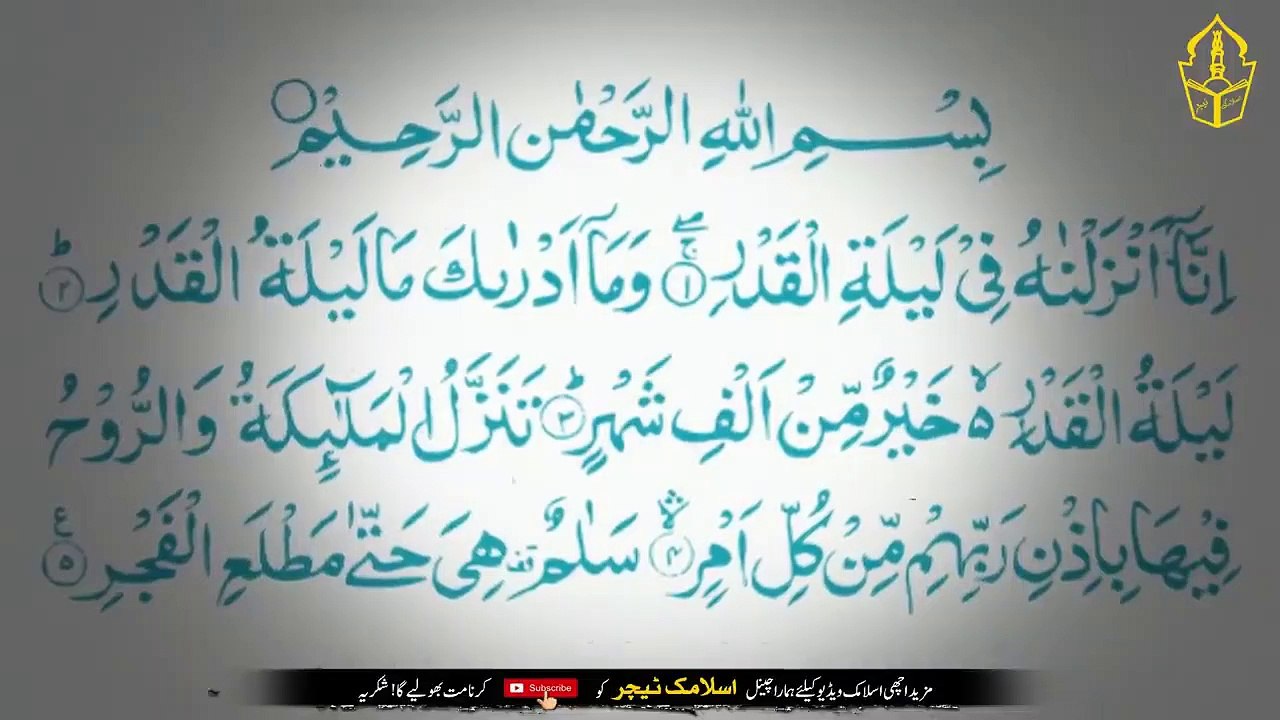 بِسْمِ اللّٰهِ الرَّحْمٰنِ الرَّحِيْمِ
اِنَّاۤ اَنْزَلْنٰهُ فِیْ لَیْلَةِ الْقَدْرِ ۚۖ ﴿۱﴾ وَمَاۤ اَدْرٰىكَ مَا لَیْلَةُ الْقَدْرِ ؕ ﴿۲﴾
لَیْلَةُ الْقَدْرِ ۙ۬ خَیْرٌ مِّنْ اَلْفِ شَهْرٍ ؕ ﴿۳﴾ تَنَزَّلُ الْمَلٰٓىِٕكَةُ وَالرُّوْحُ
فِیْهَا بِاِذْنِ رَبِّهِمْ مِّنْ كُلِّ اَمْرٍ ۛ ﴿۴﴾ سَلٰمٌ هِیَ حَتّٰی مَطْلَعِ الْفَجْرِ ﴿۵﴾ ع
مزید اچھی اسلامک ویڈیو کیلئے ہمارا چینل اسلامک ٹیچر کو Subscribe کرنا مت بھولیے گا! شکریہ